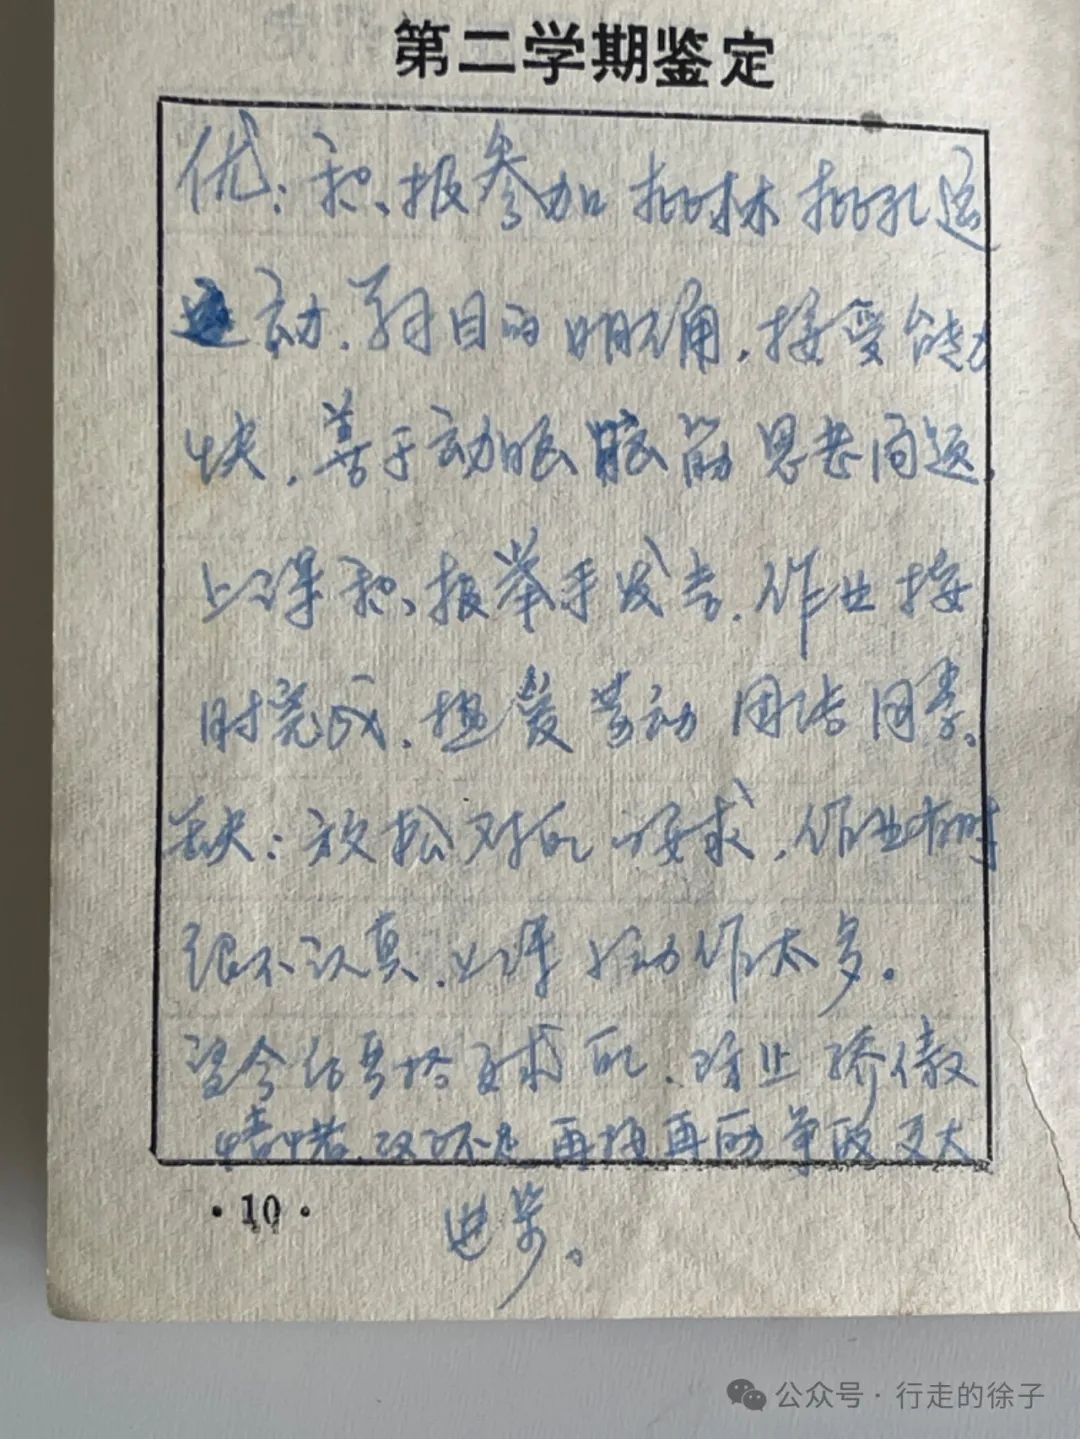 第二学期鉴定
优：积极参加批林批孔运
动．学习目的明确，接受能力
快，善于动脑筋思考问题，
上课积极举手发言．作业按
时完成．热爱劳动 团结同学。
缺：放松对自己要求，作业有时
很不认真．上课小动作太多。
望今后严格要求自己．防止骄傲
改不足 再接再励争取更大
进步。
·10·
公众号·行走的徐子